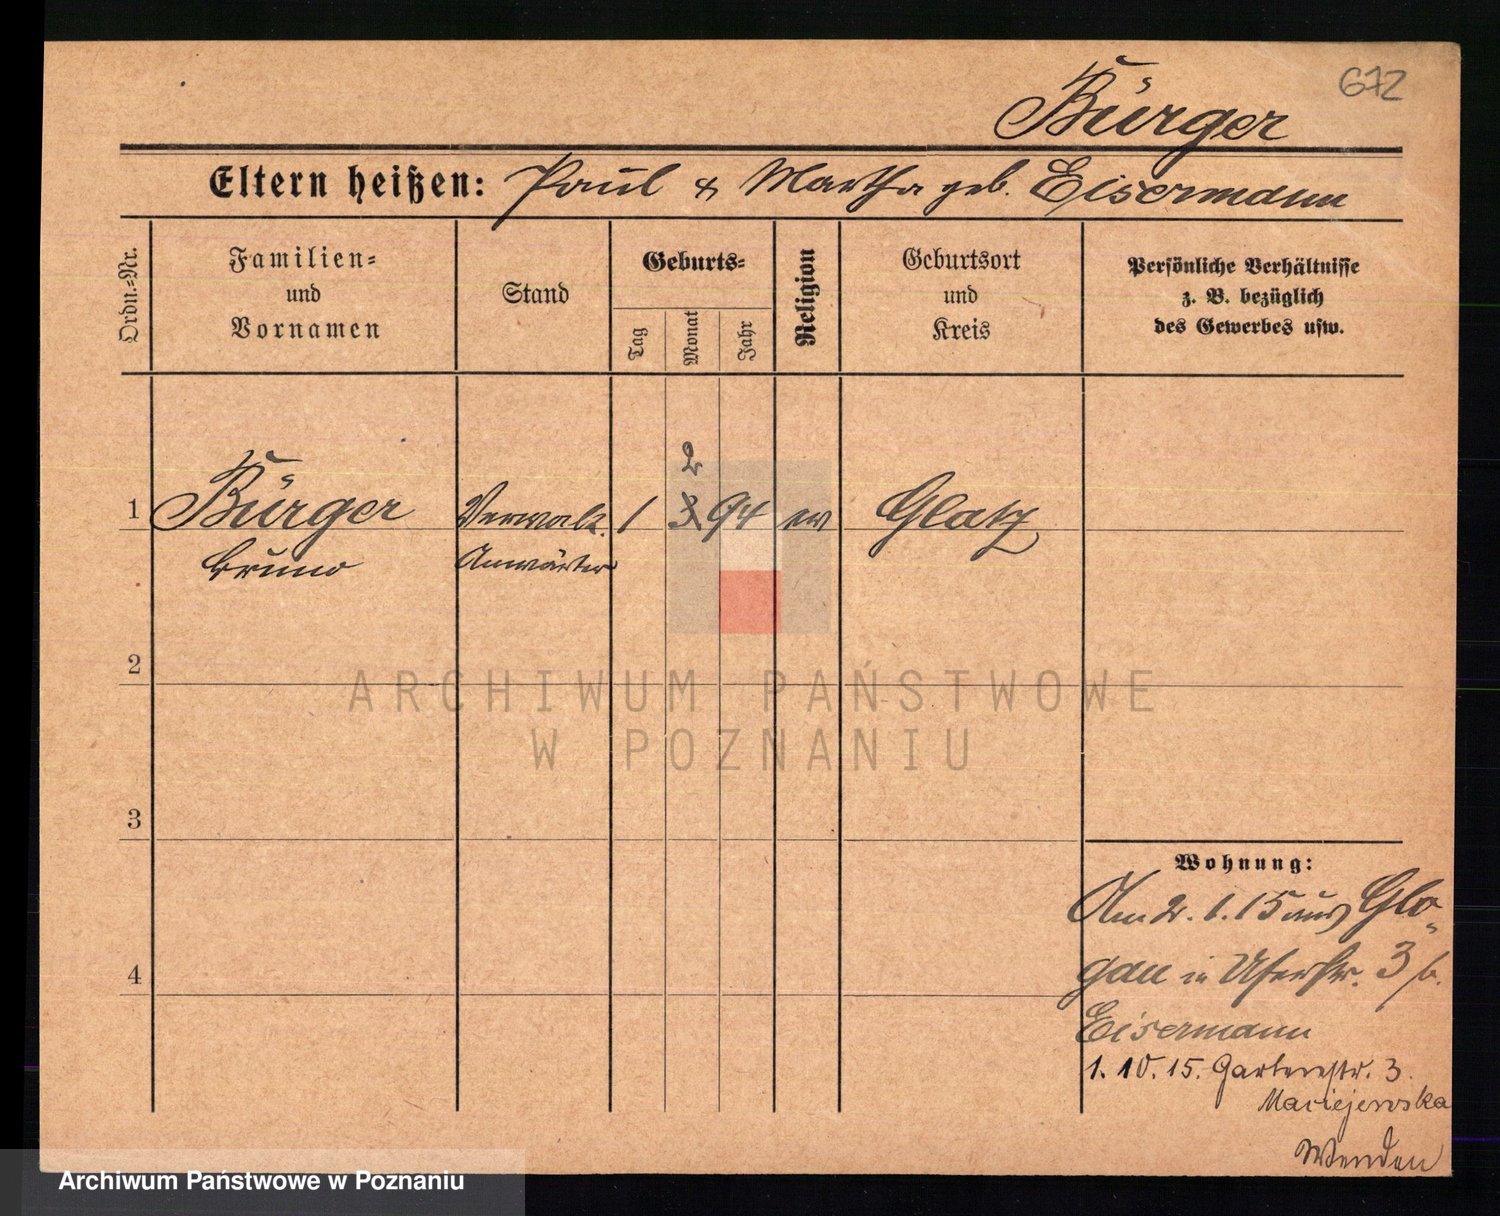 672
Bürger
Eltern heißen: Paul & Martha geb. Eisermann
Ordn.-Nr.
Familien-
und
Vornamen
Stand
Geburts-
Tag
Monat
Jahr
Religion
Geburtsort
und
Kreis
Persönliche Verhältnisse
z. B. bezüglich
des Gewerbes usw.
2
1 Bürger Verwalt. 1 3 94 ev Glatz
Bruno Anwärter
2
ARCHIWUM PAŃSTWOWE
W POZNANIU
3
Wohnung:
Am 2. 1. 15 aus Glo-
4
gau in Uferstr. 3 b.
Eisermann
1. 10. 15. Gartenstr. 3.
Maciejewska
Wenden
Archiwum Państwowe w Poznaniu